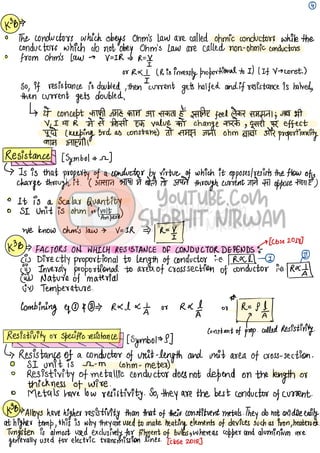 ④
K³B⇒
○ The conductors which obeys Ohm's law are called ohmic conductors while the
conductors which do not obey Ohm's law are called non-ohmic conductors
○ From ohm's law → V=IR ⇒ R=V/I
or R∝1/I (R is inversly proportional to I) (If V→const.)
So, if resistance is doubled, then current gets halfed and if resistance is halved,
then current gets doubled.
Resistance [Symbol→Ω]
↳ It is that property of a conductor by virtue of which it opposes/resists the flow of
charge through it.
○ It is a Scalar Quantity
○ SI Unit is ohm or volt/Ampere
YOUTUBE.COM/
SHOBHIT NIRWAN
We know ohm's law → V=IR ⇒ R=V/I
K³B FACTORS ON WHICH RESISTANCE OF CONDUCTOR DEPENDS: [Cbse 2018]
(i) Directly proportional to length of conductor i.e R∝l —①
(ii) Inversly proportional to area of cross section of conductor i.e R∝1/A ②
(iii) Nature of material
(iv) Temperature.
Combining eq ① & ② ⇒ R∝l∝1/A or R∝l/A or R=ρl/A
Constant of prop. called Resistivity.
Resistivity or Specific resistance [Symbol→ρ]
↳ Resistance of a conductor of unit-length and unit area of cross-section.
○ SI unit is Ω-m (ohm-meter)
○ Resistivity of metallic conductor does not depend on the length or
thickness of wire.
○ Metals have low resistivity. So, they are the best conductor of current.
K³B Alloys have higher resistivity than that of their constituent metals. They do not oxidise easily
at higher temp, this is why they are used to make heating elements of devices such as Iron, heater etc.
Tungsten is almost used exclusively for filament of bulbs, whereas copper and aluminium are
generally used for electric transmission lines [Cbse 2018]